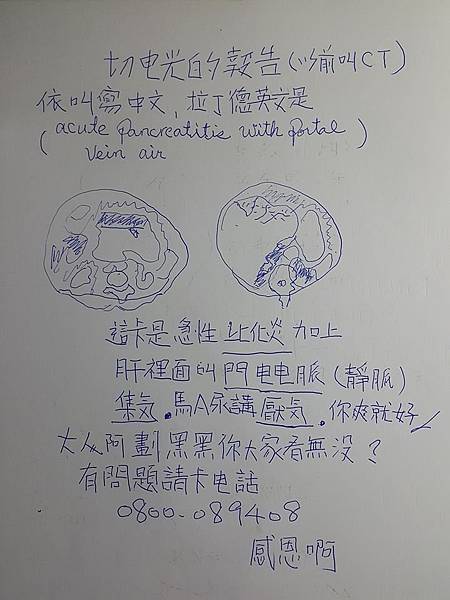 切电光的報告(以前叫CT)
依叫寫中文,拉丁德英文是
(acute pancreatitis with portal
vein air)
這卡是急性 化炎 加上
肝裡面的門 脈(靜脈)
集気。馬A永講厭気。你爽就好
大人阿劃黑黑你大家看無没?
有問題請卡电話
0800-089408
感恩啊